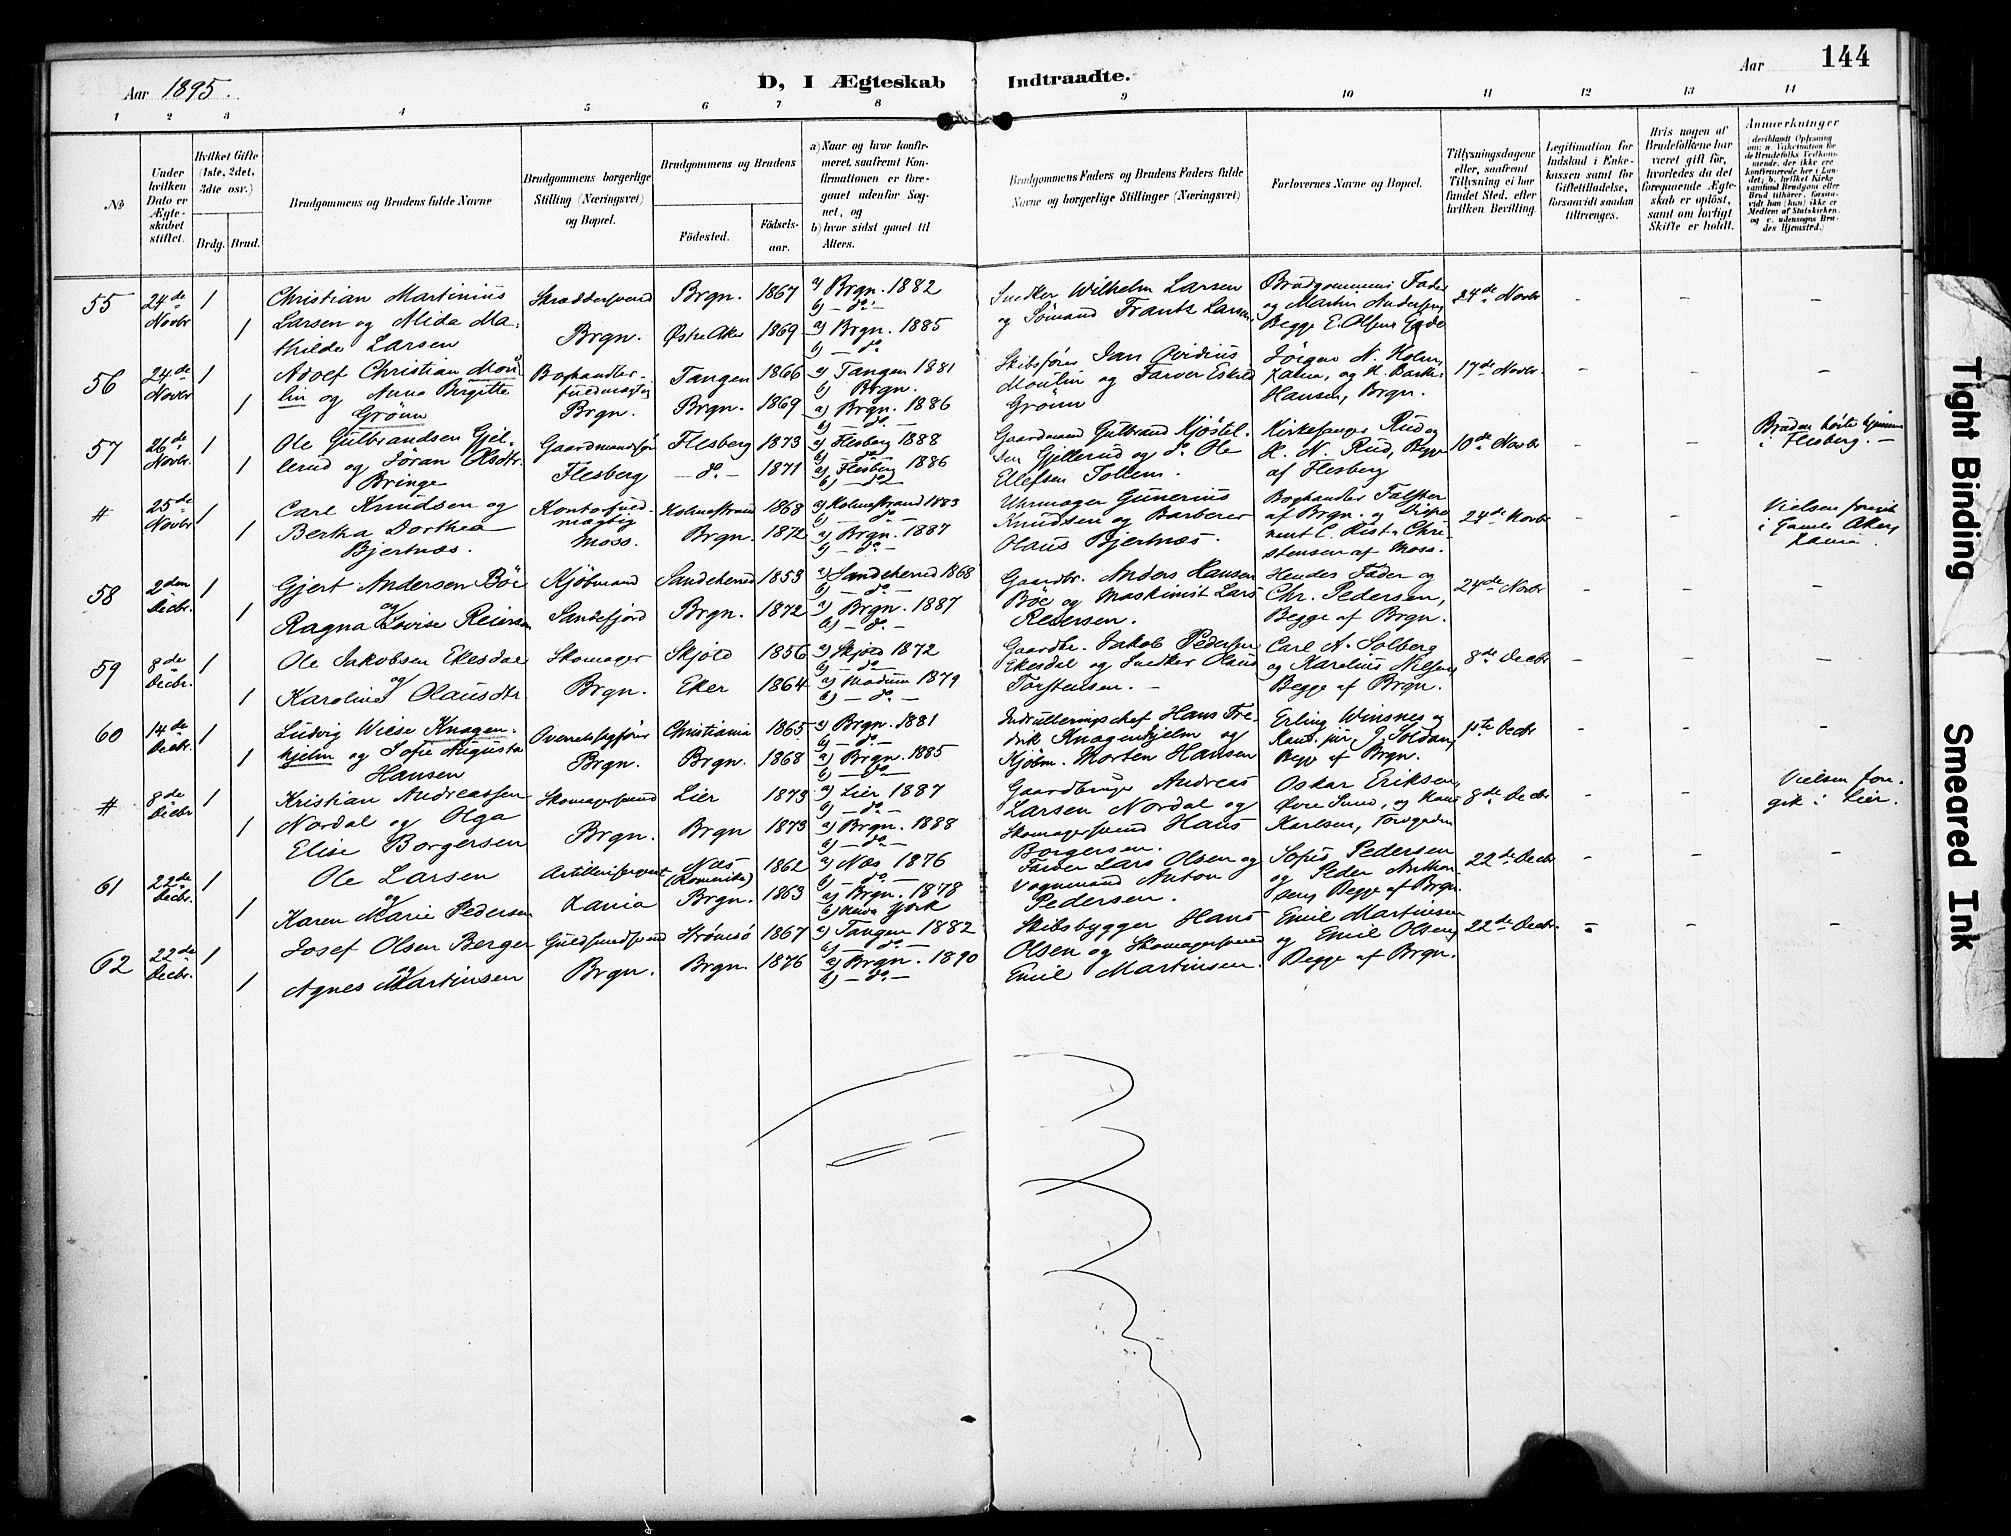 144
Aar 1895.
D, I Ægteskab Indtraadte.
Aar
1 2 3 4 5 6 7 8 9 10 11 12 13 14
No
Under hvilken Dato er Ægteskabet stiftet.
Hvilket Gifte (1ste, 2det, 3die osv.)
Brdg. Brud.
Brudgommens og Brudens fulde Navne
Brudgommens borgerlige Stilling (Næringsvei) og Bopæl.
Brudgommens og Brudens
Fødested.
Fødselsaar.
a) Naar og hvor konfirmeret, saafremt Konfirmationen er foregaaet udenfor Sognet, og
b) hvor sidst gaaet til Alters.
Brudgommens Faders og Brudens Faders fulde Navne og borgerlige Stillinger (Næringsvei)
Forlovernes Navne og Bopæl.
Tillysningsdagene eller, saafremt Tillysning ei har fundet Sted, efter hvilken Bevilling.
Legitimation for Indskud i Enkekassen samt for Giftetilladelse, forsaavidt saadan tiltrænges.
Hvis nogen af Brudefolkene har været gift før, hvorledes da det foregaaende Ægteskab er opløst, samt om lovligt Skifte er holdt.
Anmerkninger
55 24de Novbr 1 Christian Martinius Skræddersvend Brgn. 1867 a) Brgn. 1882 Snedker Wilhelm Larsen Brudgommens Fader 24de Novbr - - -
1 Larsen og Alida Mathilde Larsen Brgn. Østre Aker 1869 a) Brgn. 1885 b) - do og Sømand Frantz Larsen og Martin Andersen Begge E. Olsens Gade
56 24de Novbr 1 Adolf Christian Moulin og Anna Birgitte Grønn Boghandlerfuldmægtig Tangen 1866 a) Tangen 1881 b) Brgn. Skibsfører Jan Ovidius Jørgen N. Holm, 17de Novbr. - - -
1 Brgn. Brgn. 1869 a) Brgn. 1886 b) do. Moulin og Farver Eskild Grønn Xania, og H. Hansen, Brgn.
57 26de Novbr. 1 Ole Gulbrandsen Gjellerud og Jøran Olsdtr. Bringe Gaardmandssøn Flesberg 1873 a) Flesberg 1888 b) do Gaardmand Gulbrand Kjøstelsen Gjellerud og do Ole Kirkesanger Rud og 10de Novbr - - Bruden hørte hjemme i Flesberg. -
1 Flesberg - do - 1871 a) Flesberg 1886 b) - do Ellefsen Tollem. H. N. Rud, Begge af Flesberg
# 25de Novbr 1 Carl Knudsen og Kontorfuldmægtig Holmestrand 1868 a) Holmestrand 1883 b) - do - Uhrmager Gunerius Boghandler Falster 24de Novbr - - Vielsen foregik i Gamle Akers
1 Bertha Dorthea Bjertnæs. Moss. Brgn. 1872 a) Brgn. 1887 b) - do - Knudsen og Barberer Olaus Bjertnæs. af Brgn. og Disponent C. Christensen af Moss. Xania
58 2den Decbr. 1 Gjert Andersen Bøe Kjøbmand Sandeherred 1853 a) Sandeherred 1868 b) do Gaardbr. Anders Hansen Hendes Fader og 24de Novbr - - -
1 og Ragna Lovise Reiersen Sandefjord Brgn. 1872 a) Brgn. 1887 b) - do - Bøe og Maskinist Lars Reiersen. Chr. Pedersen, Begge af Brgn.
59 8de Decbr. 1 Ole Jakobsen Ekesdal Skomager Skjold 1856 a) Skjold 1872 b) - do Gaardbr. Jakob Pedersen Carl A. Solberg 8de Decbr - - -
1 og Karoline Olausdtr Brgn. Eker 1864 a) Modum 1879 b) - do - Ekesdal og Snedker Olaus Torstensen. - og Karelius Nilsen, Begge af Brgn.
60 14de Decbr. 1 Ludvig Wiese Knagenhjelm og Sofie Augusta Hansen Overretssagfører Christiania 1865 a) Brgn. 1881 b) - do - Indrulleringschef Hans Fredrik Knagenhjelm og Erling Winsnes og 1ste Decbr - - -
1 Brgn. Brgn. 1868 a) Brgn. 1885 b) - do Kjøbm. Morten Hansen J. Begge af Brgn.
# 8de Decbr 1 Kristian Andreassen Skomagersvend Lier 1873 a) Lier 1887 b) - do - Gaardbruger Andreas Oskar Eriksen, 8de Decbr - - Vielsen foregik i Lier.
1 Nordal og Olga Elise Borgersen Brgn. Brgn 1873 a) Brgn. 1888 b) - do - Larsen Nordal og Skomagersvend Hans Borgersen. Øvre Sund, og Karlsen, Torvgaden
61 22de Decbr. 1 Ole Larsen Artillerisergeant Næs (Romerike) 1862 a) Næs 1876 b) - do - Farver Lars Olsen og Sofus Pedersen 22de Decbr - - -
1 og Karen Marie Pedersen Xania Brgn. 1863 a) Brgn. 1878 b) New York Vognmand Anton Pedersen. og Peder Anthonsen, Begge af Brgn.
62 22de Decbr. 1 Josef Olsen Berger Guldsmedsvend Strømsø 1867 a) Tangen 1882 b) - do. - Skibsbygger Hans Emil Martinsen 22de Decbr. - - -
1 og Agnes Martinsen Brgn. Brgn. 1876 a) Brgn. 1890 b) - do. - Olsen og Skomagersvend Emil Martinsen. og Emil Olsen, Begge af Brgn.
Tight Binding
Smeared Ink